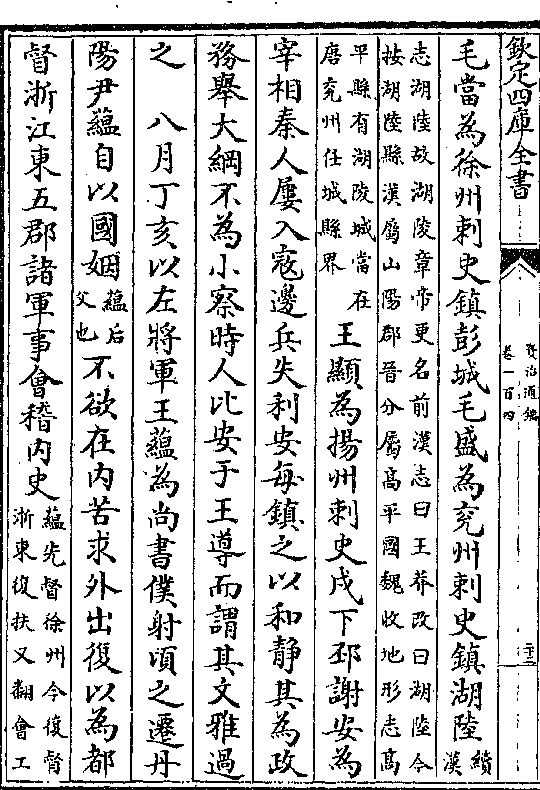 欽定四庫全書
資治通鑑
卷一百四
毛當為徐州刺史鎮彭城毛盛為兗州刺史鎮湖陸續漢
志湖陸故湖陵章帝更名前漢志曰王莽改曰湖陸今
按湖陸縣漢屬山陽郡晉分屬高平國魏收地形志高
平縣有湖陵城當在
唐兗州任城縣界
王顯為揚州刺史戍下邳謝安為
宰相秦人屢入寇邊兵失利安每鎮之以和靜其為政
務舉大綱不為小察時人比安于王導而謂其文雅過
之 八月丁亥以左將軍王蘊為尚書僕射頃之遷丹
陽尹蘊自以國姻蘊后父也不欲在内苦求外出復以為都
督浙江東五郡諸軍事會稽内史
蘊先督徐州今復督
浙東復扶又翻會工